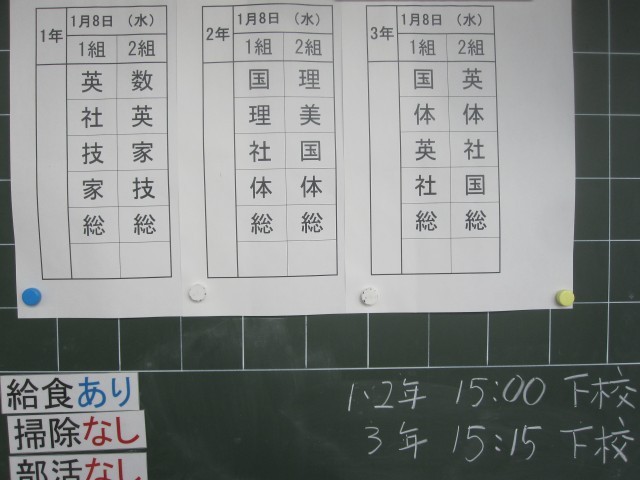 1年 1月8日 (水)
1組 2組
英 数
社 英
技 家
家 技
総 総
2年 1月8日 (水)
1組 2組
国 理
理 美
社 国
体 体
総 総
3年 1月8日 (水)
1組 2組
国 英
体 体
英 社
社 国
総 総
給食あり
掃除なし
部活なし
1・2年 15:00 下校
3年 15:15 下校